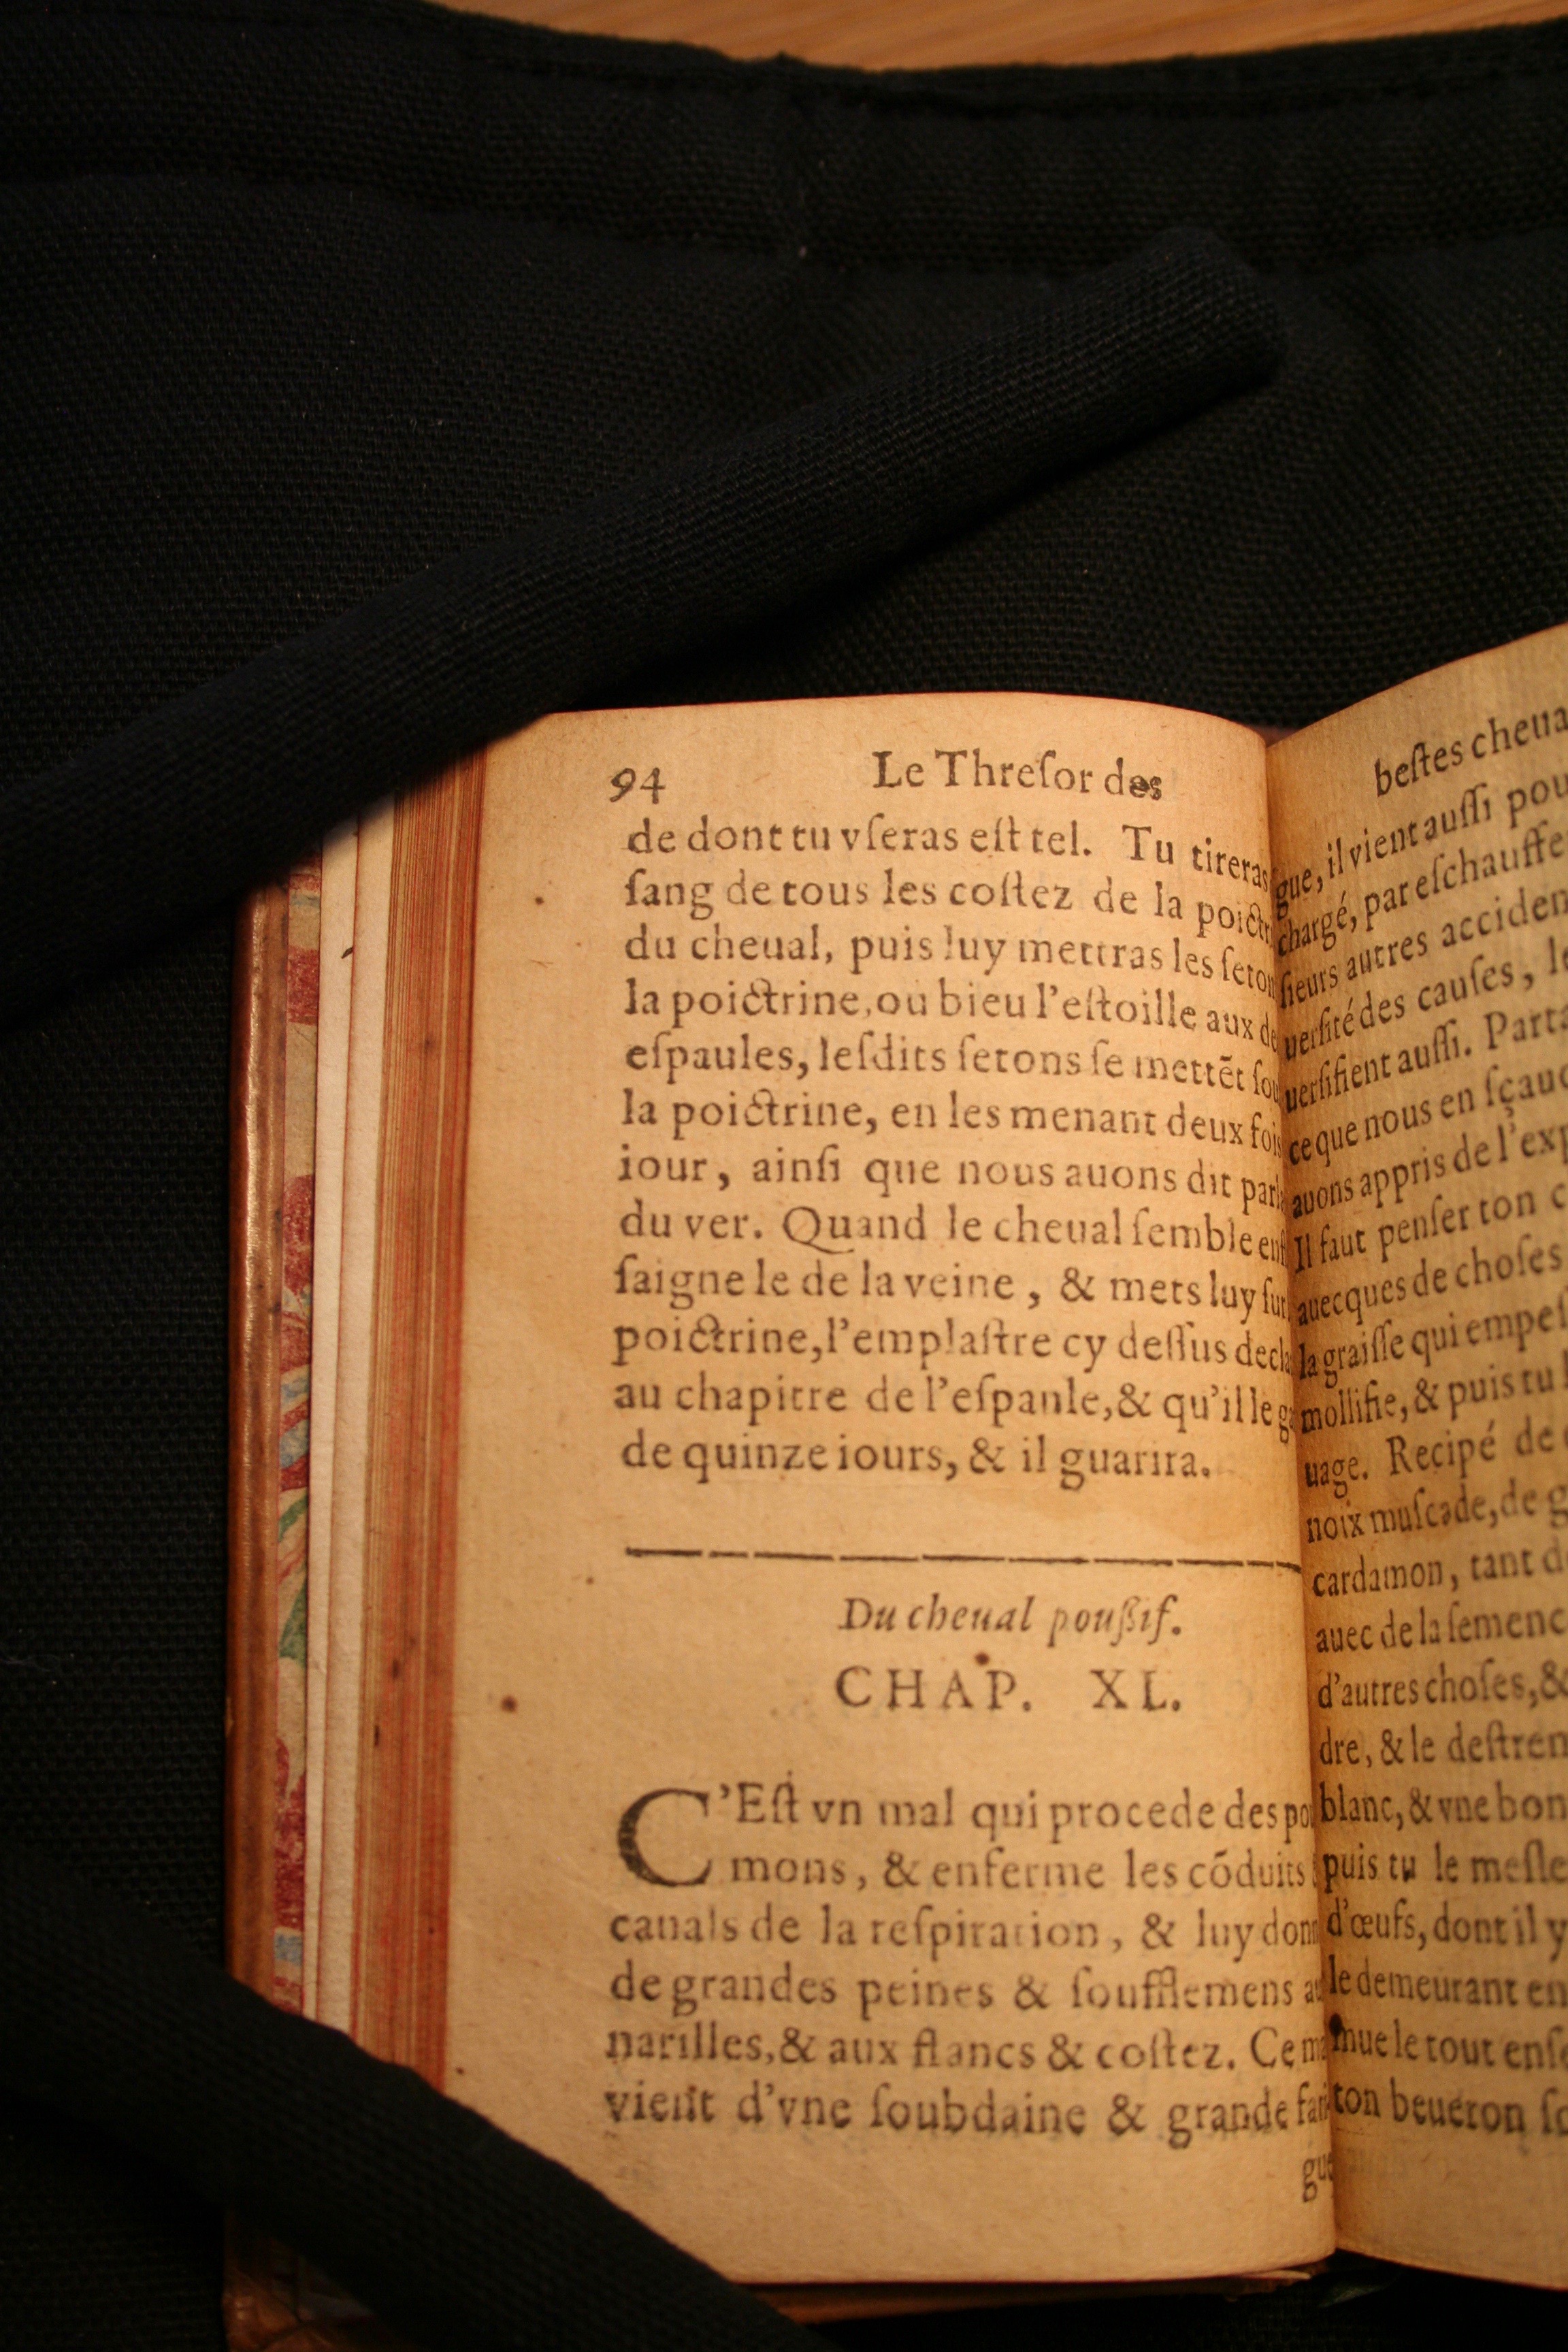 94 Le Threſor des
de dont tu vſeras eſt tel. Tu tireras
ſang de tous les coſtez de la poictr
du cheual, puis luy mettras les ſeton
la poictrine, ou bieu l'eſtoille aux de
eſpaules, leſdits ſetons ſe mettēt ſou
la poictrine, en les menant deux fois
iour, ainſi que nous auons dit parl
du ver. Quand le cheual ſemble enf
ſaigne le de la veine, & mets luy ſur
poictrine, l'emplaſtre cy deſſus decla
au chapitre de l'eſpanle, & qu'il le g
de quinze iours, & il guarira.
Du cheual pouſsif.
CHAP. XL.
C'Eſt vn mal qui procede des po
mons, & enferme les cōduits
canals de la reſpiration, & luy donn
de grandes peines & ſoufflemens au
narilles, & aux flancs & coſtez. Ce ma
vient d'vne ſoubdaine & grande fati
gue
beſtes cheua
gue, il vient auſſi pou
chargé, par eſchauffe
ſieurs autres acciden
uerſité des cauſes, le
uerſifient auſſi. Parta
ce que nous en ſçauo
auons appris de l'exp
Il faut penſer ton c
auecques de choſes
la graiſſe qui empeſ
mollifie, & puis tu l
uage. Recipé de
noix muſcade, de g
cardamon, tant d
auec de la ſemenc
d'autres choſes, &
dre, & le deſtrem
blanc, & vne bon
puis tu le meſle
d'œufs, dont il y
le demeurant en
mue le tout enſe
ton beueron ſe